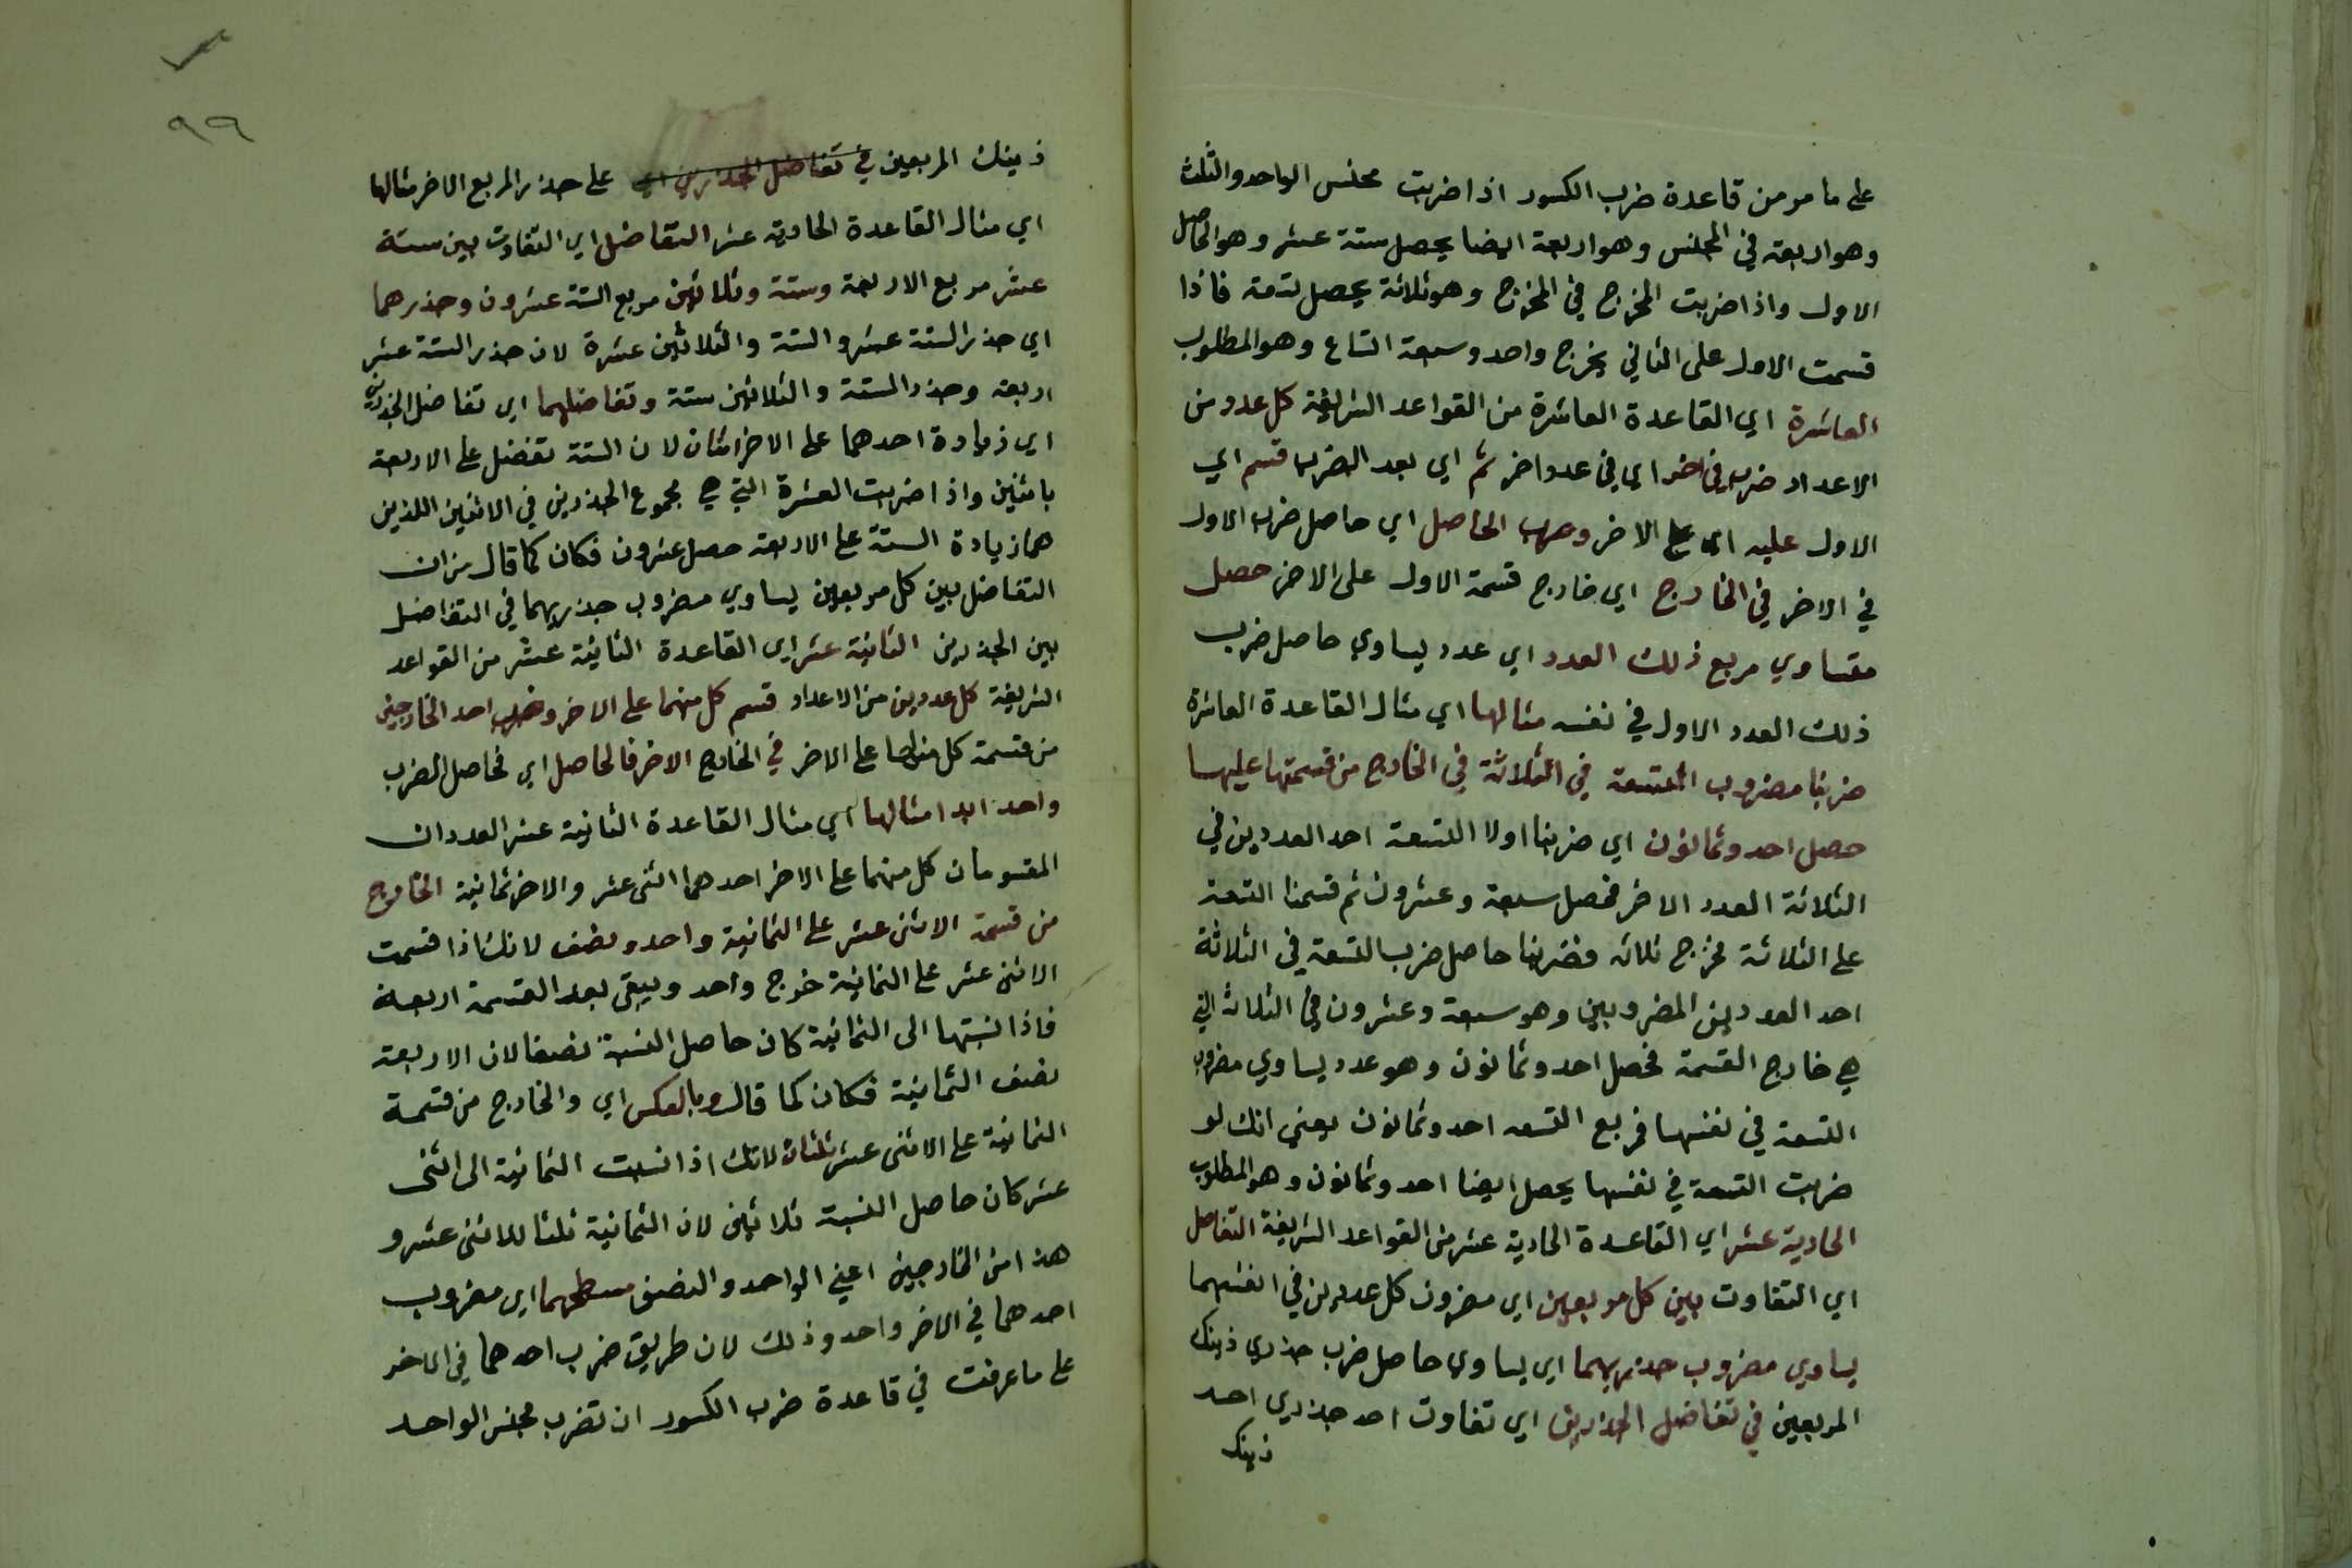 على ما مر من قاعدة ضرب الكسور اذا ضربت مجنس الواحد والثلث
وهو اربعة في المجنس وهو اربعة ايضا يحصل ستة عشر وهو الحاصل
الاول واذا ضربت المخرج في المخرج وهو ثلاثة يحصل تسعة فاذا
قسمت الاول على الثاني يخرج واحد وسبعة اتساع وهو المطلوب
العاشرة اي القاعدة العاشرة من القواعد الشريفة كل عدد من
الاعداد ضرب في اخر اي في عدد اخر ثم اي بعد الضرب قسم اي
الاول عليه اي على الاخر وضرب الحاصل اي حاصل ضرب الاول
في الاخر في الخارج اي خارج قسمة الاول على الاخر حصل
مساوي مربع ذلك العدد اي عدد يساوي حاصل ضرب
ذلك العدد الاول في نفسه مثالها اي مثال القاعدة العاشرة
ضربنا مضروب التسعة في الثلاثة في الخارج من قسمتها عليها
حصل احد وثمانون اي ضربنا اولا التسعة احد العددين في
الثلاثة العدد الاخر فحصل سبعة وعشرون ثم قسمنا التسعة
على الثلاثة فخرج ثلاثه فضربنا حاصل ضرب التسعة في الثلاثة
احد العددين المضروبين وهو سبعة وعشرون في الثلاثة التي
هي خارج القسمة فحصل احد وثمانون وهو عدد يساوي مضروب
التسعة في نفسها فمربع التسعه احد وثمانون يعني انك لو
ضربت التسعة في نفسها يحصل ايضا احد وثمانون وهو المطلوب
الحادية عشر اي القاعدة الحادية عشر من القواعد الشريفة التفاضل
اي التفاوت بين كل مربعين اي مضروب كل عددين في انفسهما
يساوي مضروب جذريهما اي يساوي حاصل ضرب جذري ذينك
المربعين في تفاضل الجذرين اي تفاوت احد جذري احد
ذينك
٩٩
ذينك المربعين في تفاضل الجذرين اي على جذر المربع الاخر مثالها
اي مثال القاعدة الحادية عشر التفاضل اي التفاوت بين ستة
عشر مربع الاربعة وستة وثلاثين مربع الستة عشرون وجذرهما
اي جذر الستة عشر والستة والثلاثين عشرة لان جذر الستة عشر
اربعة وجذر الستة والثلاثين ستة وتفاضلهما اي تفاضل الجذرين
اي زيادة احدهما على الاخر اثنان لان الستة تفضل على الاربعة
باثنين واذا ضربت العشرة التي هي مجموع الجذرين في الاثنين اللذين
هما زيادة الستة على الاربعة حصل عشرون فكان كما قال من ان
التفاضل بين كل مربعين يساوي مضروب جذريهما في التفاضل
بين الجذرين الثانية عشر اي القاعدة الثانية عشر من القواعد
الشريفة كل عددين من الاعداد قسم كل منهما على الاخر وضرب احد الخارجين
من قسمة كل منهما على الاخر في الخارج الاخر فالحاصل اي فحاصل الضرب
واحد ابدا مثالها اي مثال القاعدة الثانية عشر العددان
المقسومان كل منهما على الاخر احدهما اثنى عشر والاخر ثمانية الخارج
من قسمة الاثنى عشر على الثمانية واحد ونصف لانك اذا قسمت
الاثنى عشر على الثمانية خرج واحد ويبقى بعد القسمة اربعة
فاذا نسبتها الى الثمانية كان حاصل النسبة نصفا لان الاربعة
نصف الثمانية فكان كما قال وبالعكس اي والخارج من قسمة
الثمانية على الاثنى عشر ثلثان لانك اذا نسبت الثمانية الى اثنى
عشر كان حاصل النسبة ثلاثين لان الثمانية ثلثا للاثنى عشر و
هذا من الخارجين اعني الواحد والنصف مسطحهما اي مضروب
احدهما في الاخر واحد وذلك لان طريق ضرب احدهما في الاخر
على ما عرفت في قاعدة ضرب الكسور ان تضرب مجنس الواحد